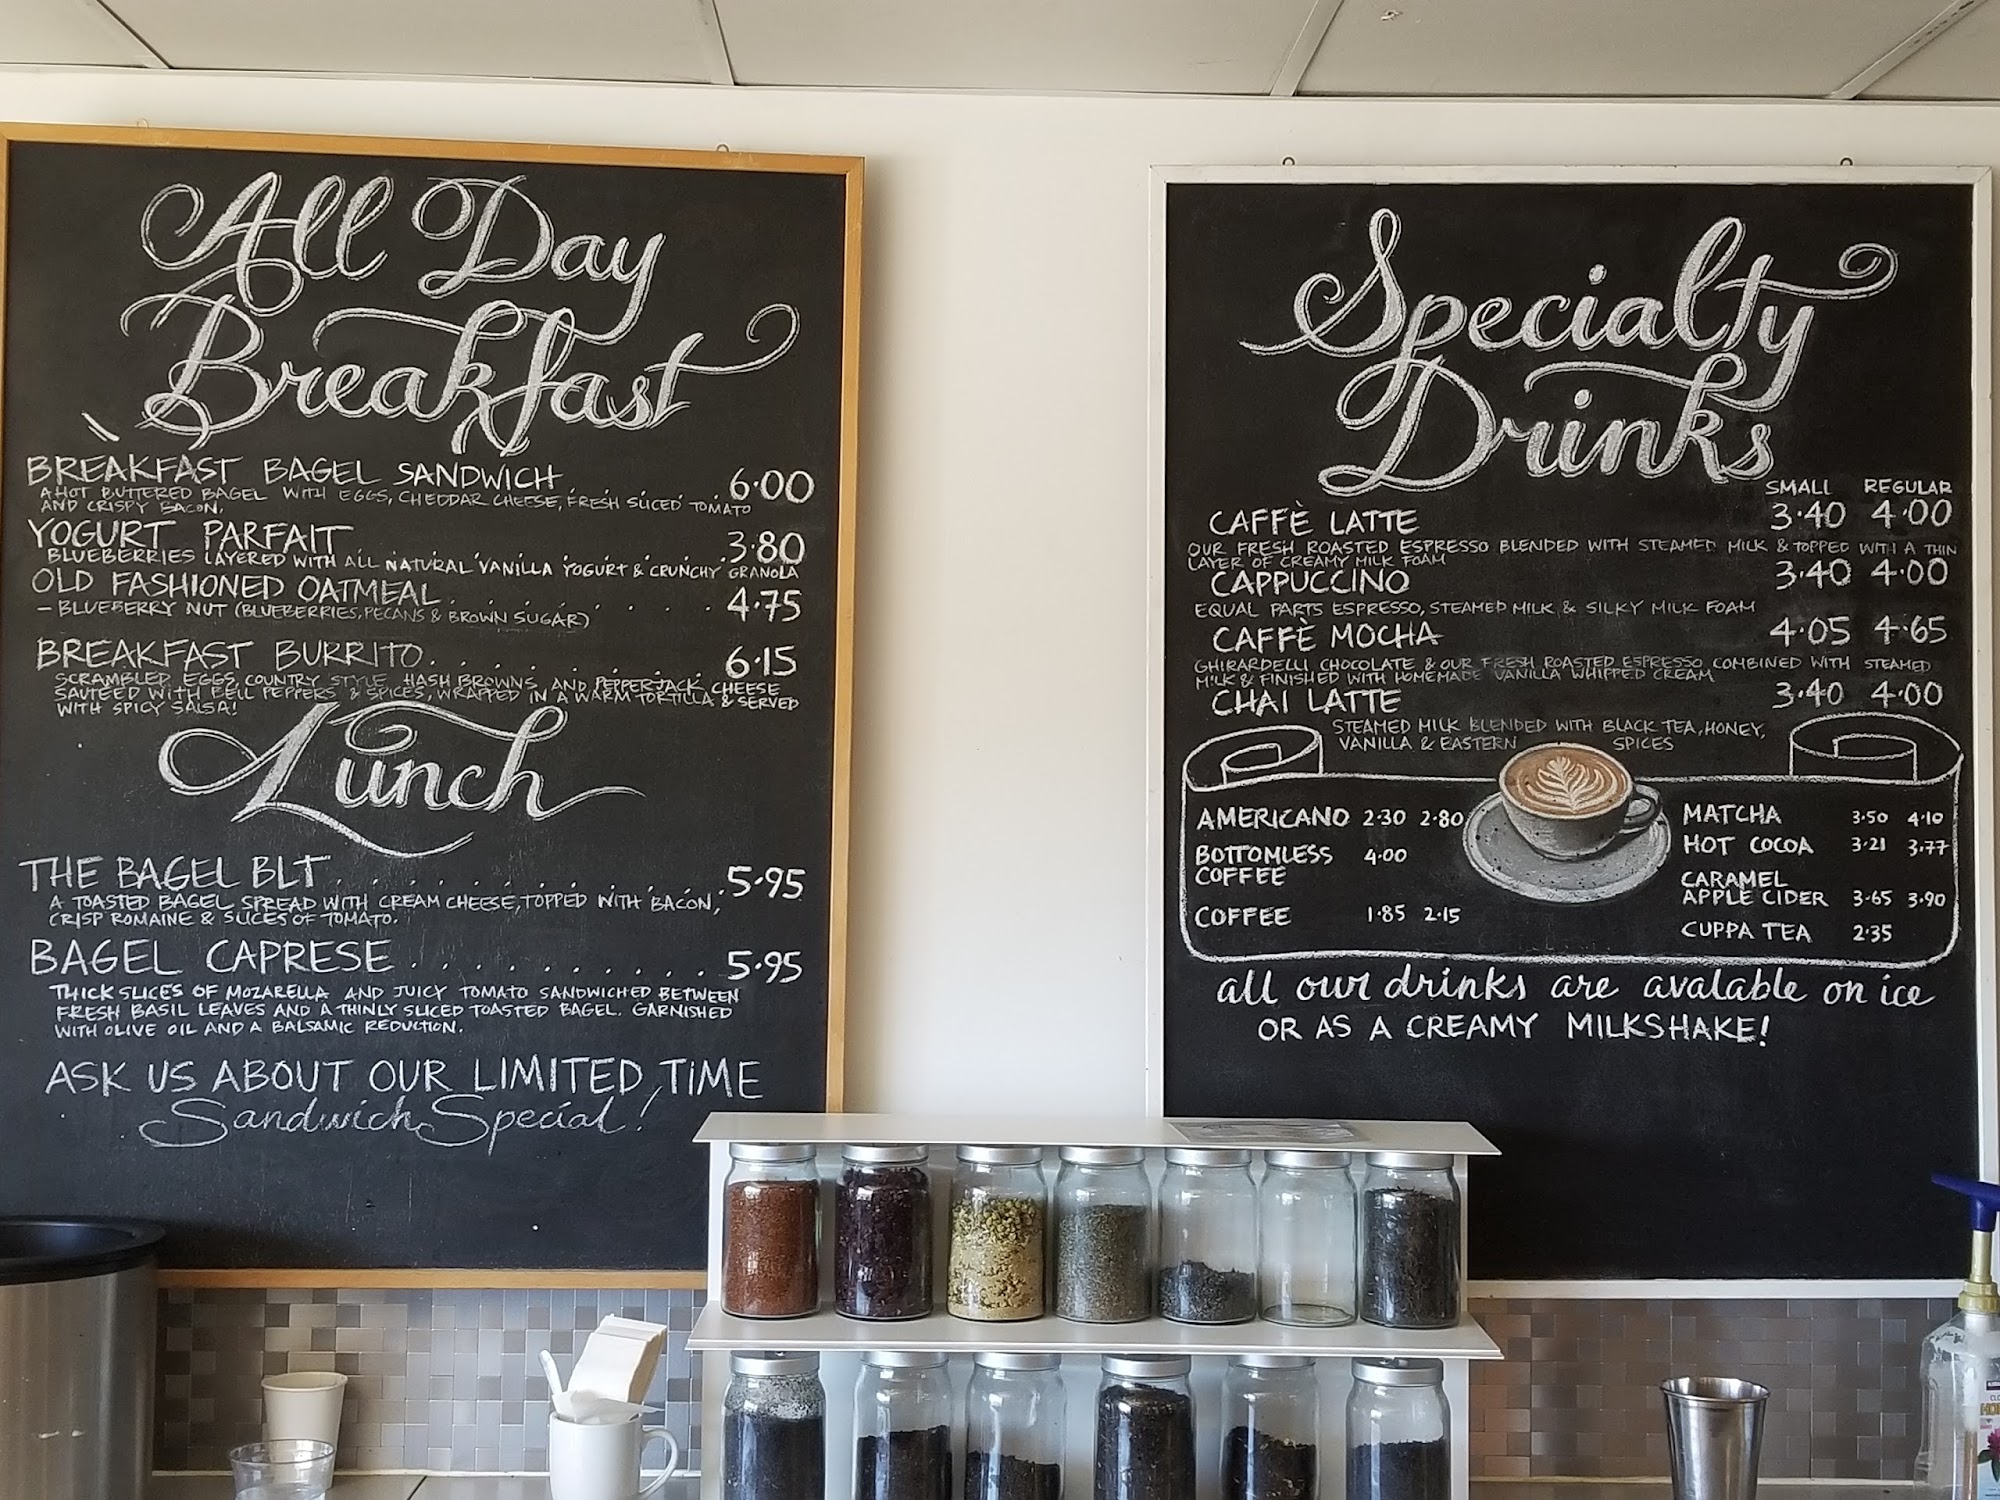 All Day
Breakfast
BREAKFAST BAGEL SANDWICH 6.00
A HOT BUTTERED BAGEL WITH EGGS, CHEDDAR CHEESE, FRESH SLICED TOMATO
AND CRISPY BACON.
YOGURT PARFAIT 3.80
BLUEBERRIES LAYERED WITH ALL NATURAL VANILLA YOGURT & CRUNCHY GRANOLA
OLD FASHIONED OATMEAL 4.75
- BLUEBERRY NUT (BLUEBERRIES, PECANS & BROWN SUGAR)
BREAKFAST BURRITO 6.15
SCRAMBLED EGGS, COUNTRY STYLE HASH BROWNS, AND PEPPERJACK CHEESE
SAUTEED WITH BELL PEPPERS & SPICES, WRAPPED IN A WARM TORTILLA & SERVED
WITH SPICY SALSA!
Lunch
THE BAGEL BLT 5.95
A TOASTED BAGEL SPREAD WITH CREAM CHEESE, TOPPED WITH BACON,
CRISP ROMAINE & SLICES OF TOMATO.
BAGEL CAPRESE 5.95
THICK SLICES OF MOZARELLA AND JUICY TOMATO SANDWICHED BETWEEN
FRESH BASIL LEAVES AND A THINLY SLICED TOASTED BAGEL. GARNISHED
WITH OLIVE OIL AND A BALSAMIC REDUCTION.
ASK US ABOUT OUR LIMITED TIME
Sandwich Special!
Specialty
Drinks
SMALL REGULAR
CAFFÈ LATTE 3.40 4.00
OUR FRESH ROASTED ESPRESSO BLENDED WITH STEAMED MILK & TOPPED WITH A THIN
LAYER OF CREAMY MILK FOAM
CAPPUCCINO 3.40 4.00
EQUAL PARTS ESPRESSO, STEAMED MILK & SILKY MILK FOAM
CAFFÈ MOCHA 4.05 4.65
GHIRARDELLI CHOCOLATE & OUR FRESH ROASTED ESPRESSO COMBINED WITH STEAMED
MILK & FINISHED WITH HOMEMADE VANILLA WHIPPED CREAM
CHAI LATTE 3.40 4.00
STEAMED MILK BLENDED WITH BLACK TEA, HONEY,
VANILLA & EASTERN SPICES
AMERICANO 2.30 2.80
BOTTOMLESS 4.00
COFFEE
COFFEE 1.85 2.15
MATCHA 3.50 4.10
HOT COCOA 3.21 3.77
CARAMEL
APPLE CIDER 3.65 3.90
CUPPA TEA 2.35
all our drinks are avalable on ice
OR AS A CREAMY MILKSHAKE!